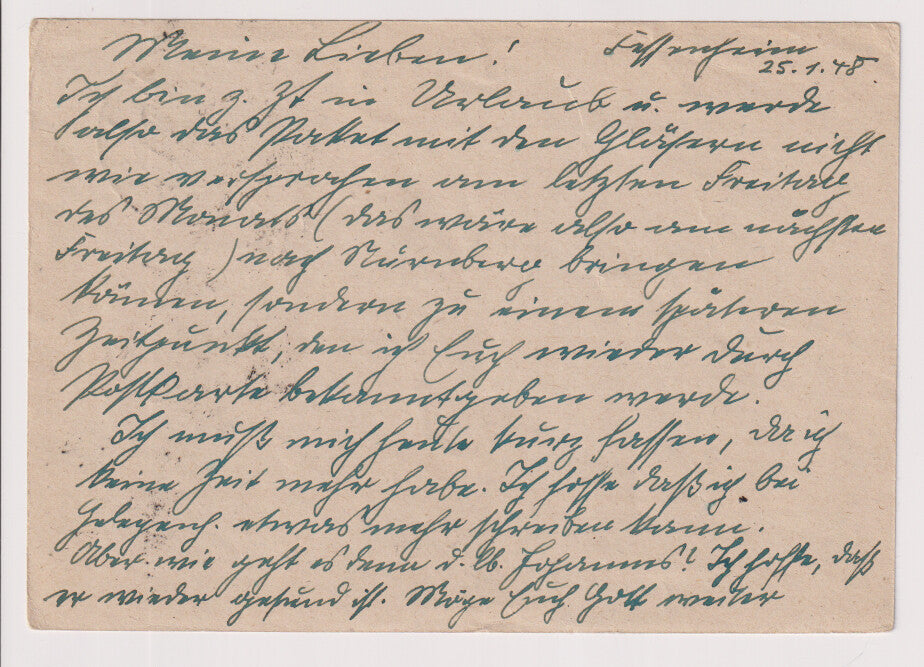 Meine Lieben! Fessenheim
25.1.48.
Ich bin z. Zt in Urlaub u. werde
also das Paket mit den Gläsern nicht
wie versprochen am letzten Freitag
des Monats (das wäre also am nächsten
Freitag) nach Nürnberg bringen
können, sondern zu einem späteren
Zeitpunkt, den ich Euch wieder durch
Postkarte bekanntgeben werde.
Ich muß mich heute kurz fassen, da ich
keine Zeit mehr habe. Ich hoffe daß ich bei
Gelegenh. etwas mehr schreiben kann.
Aber wie geht es denn d. lb. Johannes! Ich hoffe, daß
er wieder gesund ist. Möge Euch Gott weiter